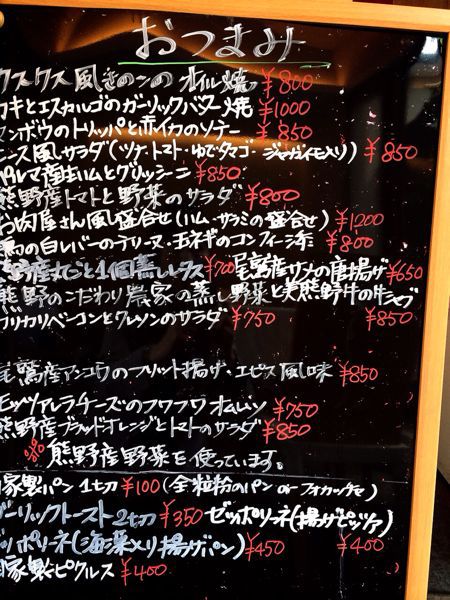 おつまみ
クスクス風きのこのオイル焼 ¥800
カキとエスカルゴのガーリックバター焼 ¥1000
マンボウのトリッパと赤イカのソテー ¥850
ニース風サラダ(ツナ・トマト・ゆでタマゴ・ジャガイモ入り) ¥850
パルマ産生ハムとグリッシーニ ¥850
熊野産トマトと野菜のサラダ ¥800
お肉屋さん風盛合せ(ハム・サラミの盛合せ) ¥1200
鶏の白レバーのテリーヌ・玉ネギのコンフィー添 ¥800
熊野産丸ごと1個蒸しレタス ¥700 尾鷲産サメの唐揚げ ¥650
熊野のこだわり農家の蒸し野菜と美熊野牛の牛シャブ
カリカリベーコンとクレソンのサラダ ¥750 ¥850
尾鷲産アンコウのフリット揚げ・エピス風味 ¥850
モッツァレラチーズのフワフワオムレツ ¥750
熊野産ブラッドオレンジとトマトのサラダ ¥850
※熊野産野菜を使っています。
自家製パン 1切 ¥100(全粒粉のパン or フォカッチャ)
ガーリックトースト2切 ¥350 ゼッポリーネ(揚げピッツァ)
ゼッポリーネ(海藻入り揚げパン) ¥450 ¥400
自家製ピクルス ¥400